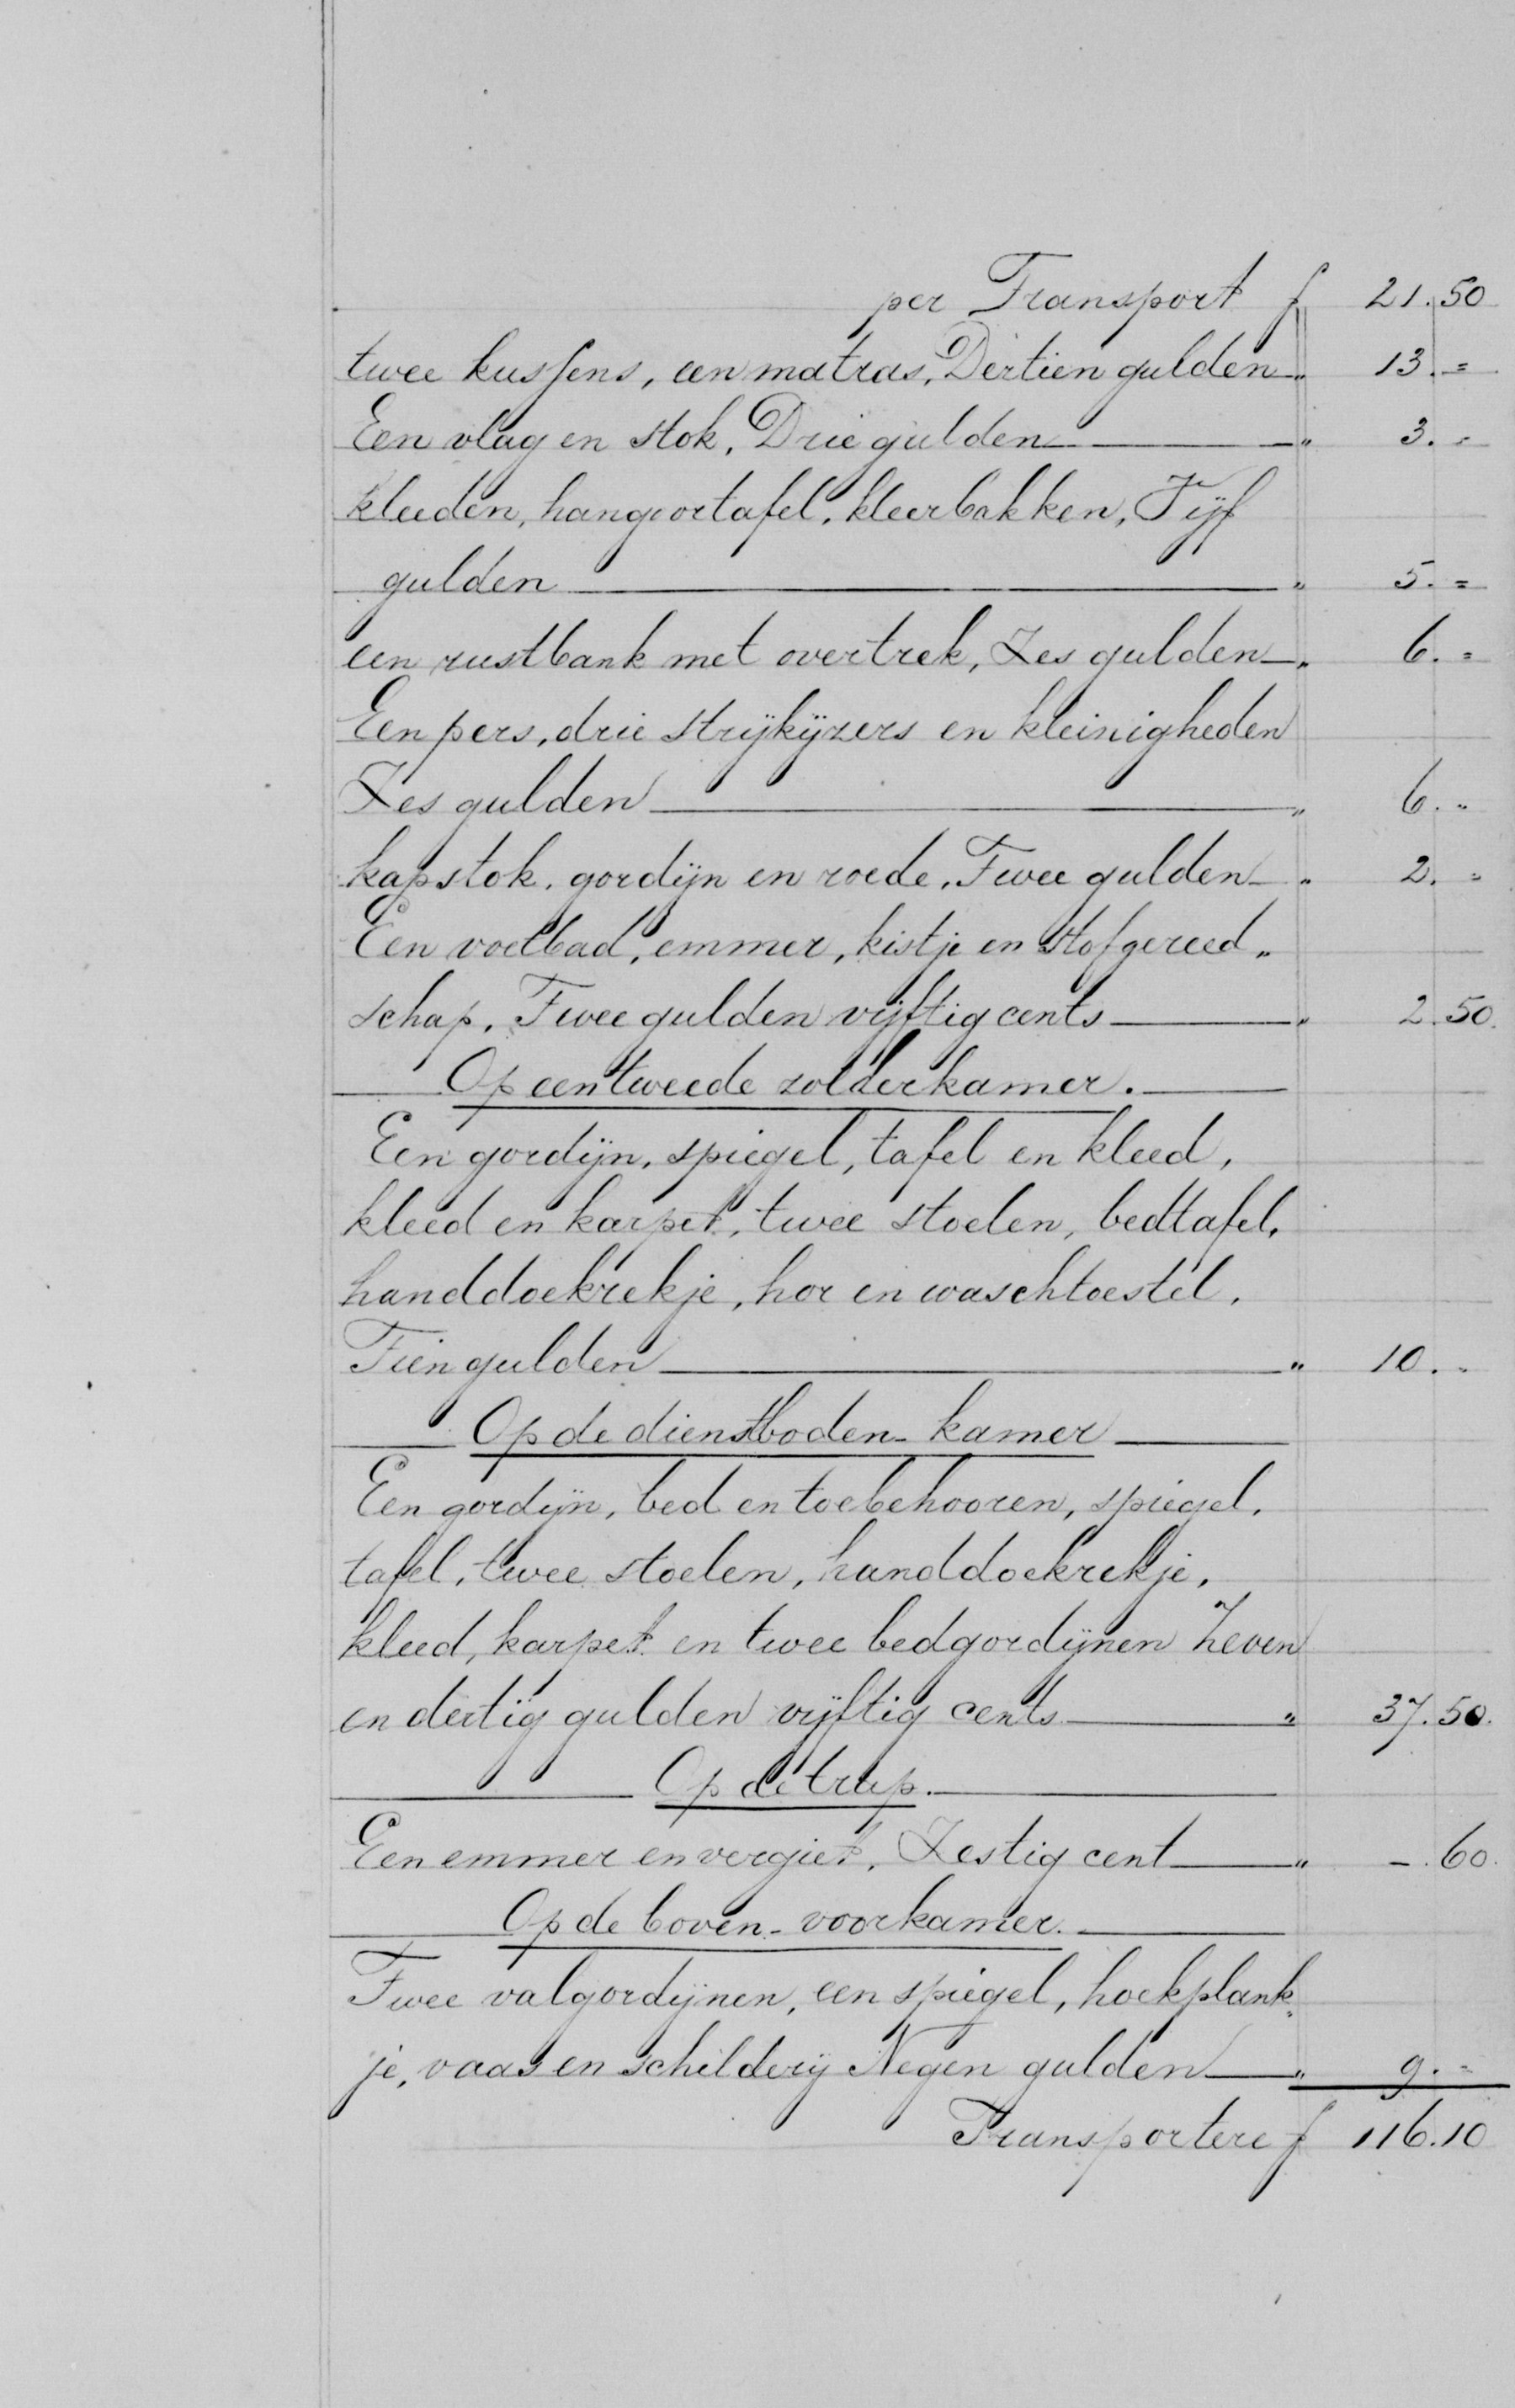 per Transport f 21.50
twee kussens, een matras, Dertien gulden " 13.=
Een vlag en stok, Drie gulden " 3.=
kleeden, hangoortafel, kleerbakken, Vijf
gulden " 5.=
een rustbank met overtrek, Zes gulden " 6.=
Een pers, drie strijkijzers en kleinigheden
Zes gulden " 6.=
kapstok, gordijn en roede, Twee gulden " 2.=
Een voetbad, emmer, kistje en stofgereed„
schap, Twee gulden vijftig cents " 2.50.
Op een tweede zolderkamer.
Een gordijn, spiegel, tafel en kleed,
kleed en karpet, twee stoelen, bedtafel,
handdoekrekje, hor en waschtoestel,
Tien gulden " 10.=
Op de dienstboden-kamer
Een gordijn, bed en toebehooren, spiegel,
tafel, twee stoelen, handdoekrekje,
kleed, karpet en twee bedgordijnen Zeven
en dertig gulden vijftig cents " 37.50.
Op de trap.
Een emmer en vergiet, Zestig cent " -.60.
Op de boven-voorkamer.
Twee valgordijnen, een spiegel, hoekplank„
je, vaas en schilderij Negen gulden " 9.=
Transportere f 116.10